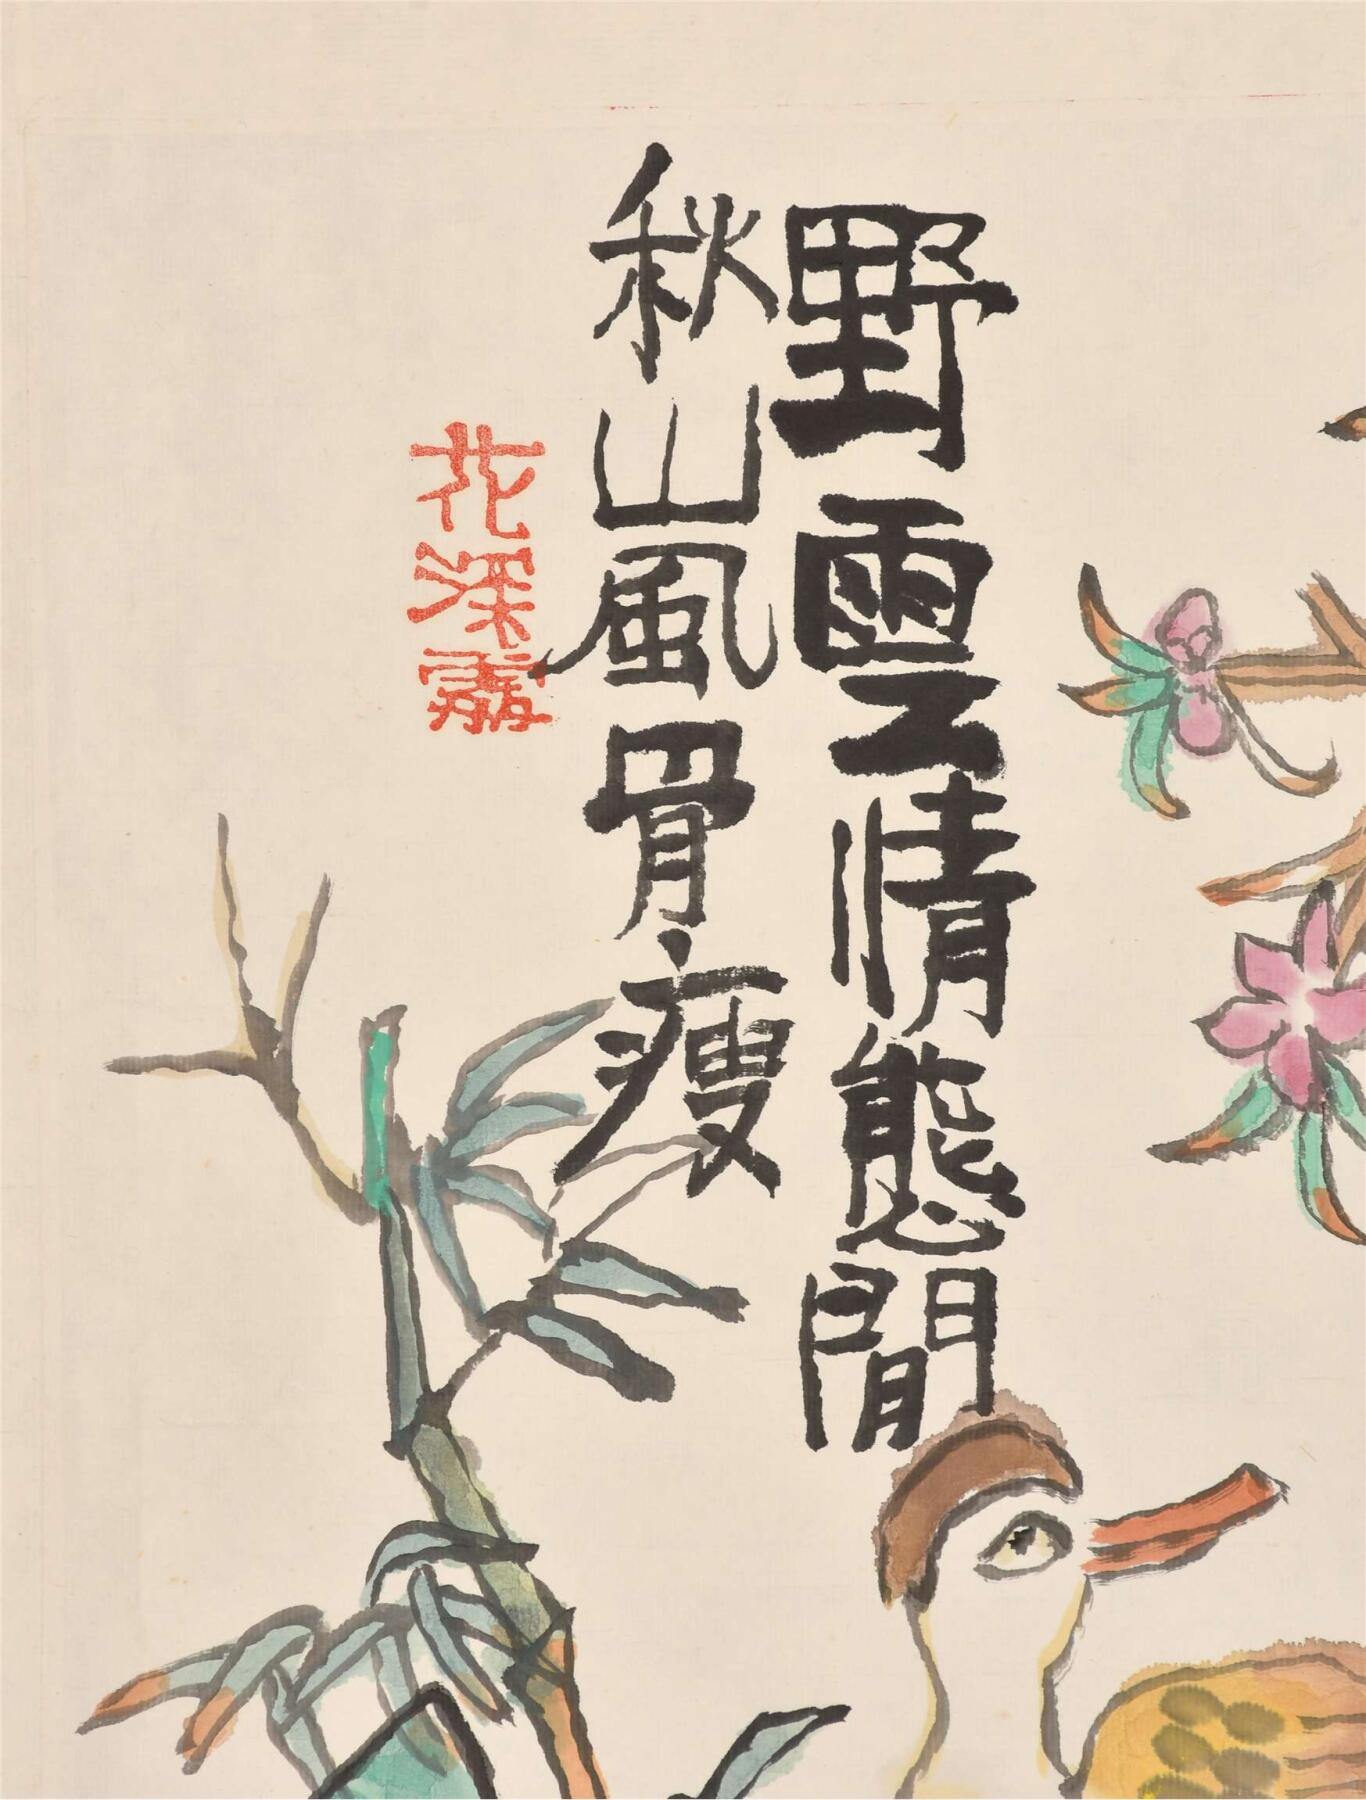 野雲情態閒
秋山風骨瘦
花深霧